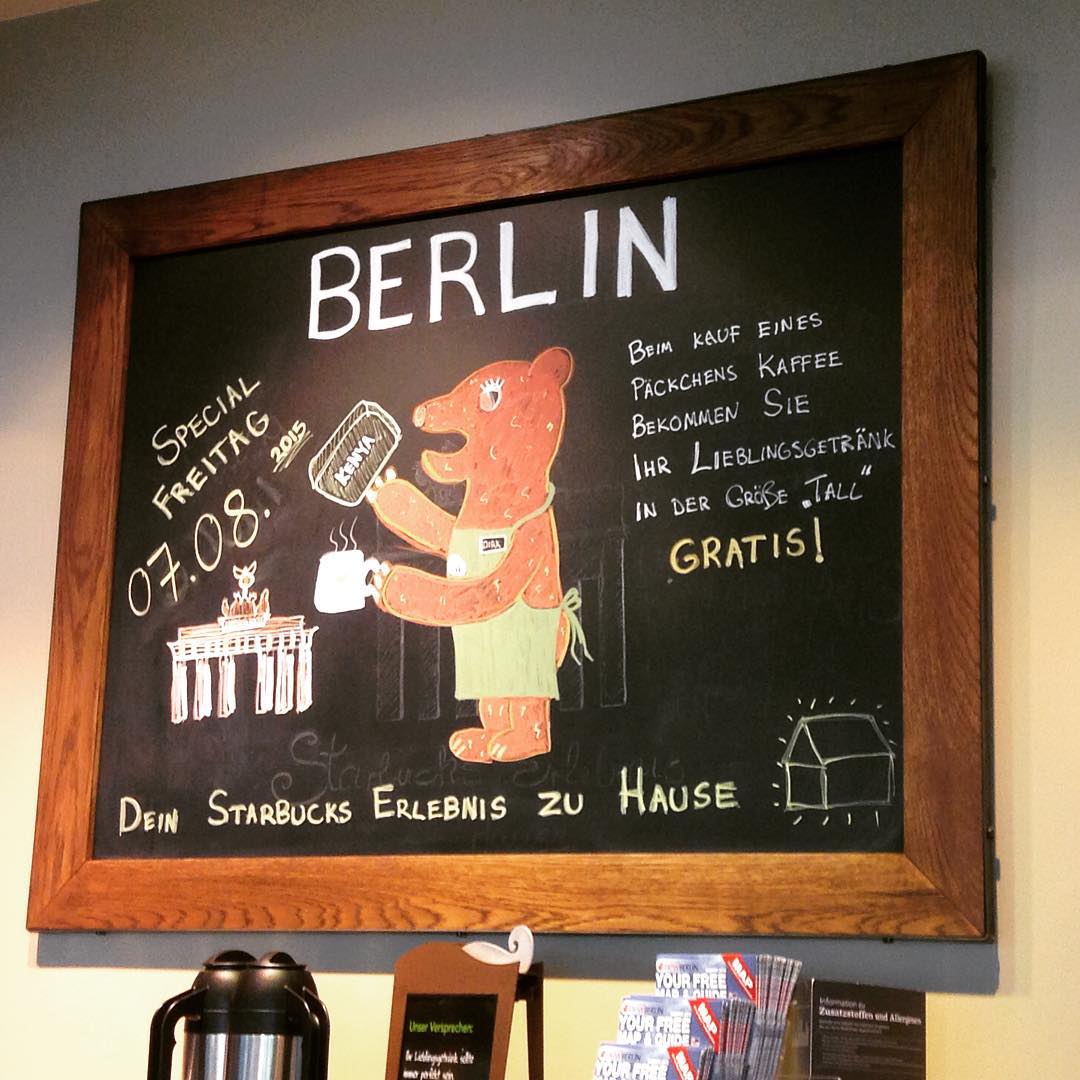 BERLIN
SPECIAL
FREITAG
2015
07.08.
KENYA
DIRK
BEIM KAUF EINES
PÄCKCHENS KAFFEE
BEKOMMEN SIE
IHR LIEBLINGSGETRÄNK
IN DER GRÖßE „TALL"
GRATIS!
DEIN STARBUCKS ERLEBNIS ZU HAUSE
Unser Versprechen:
Ihr Lieblingsgetränk sollte
immer perfekt sein.
BERLIN
YOUR FREE
MAP & GUIDE
MAP
YOUR FREE
MAP & GUIDE
MAP
BERLIN
YOUR FREE
Information zu
Zusatzstoffen und Allergenen